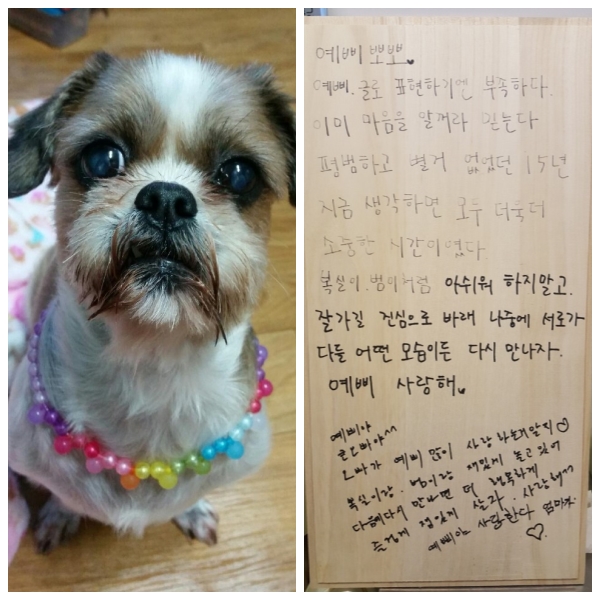 예삐 뽀뽀
예삐. 글로 표현하기엔 부족하다.
이미 마음을 알꺼라 믿는다
평범하고 별거 없었던 15년
지금 생각하면 모두 더욱더
소중한 시간이였다
복실이.범이처럼 아쉬워 하지말고.
잘가길 진심으로 바래 나중에 서로가
다들 어떤 모습이든 다시 만나자.
예삐 사랑해
예삐야
오빠야^^
오빠가 예삐 많이 사랑하는거알지♡
복실이랑. 범이랑 재밌게 놀고있어
다음에다시 만나면 더 행복하게
즐겁게 재밌게 살자. 사랑해^^
예삐야 사랑한다 엄마가.